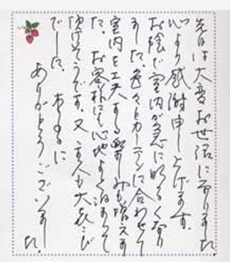 先日は大変お世話になりました
心より感謝申し上げます。
お陰で室内が急に明るくなり
ました。色々とカーテンに合わせて
室内を工夫する楽しみも増えまし
た。お客様にも心地よく泊まって
頂けそうです。又、主人も大喜び
でした。 本当に
ありがとうございました。